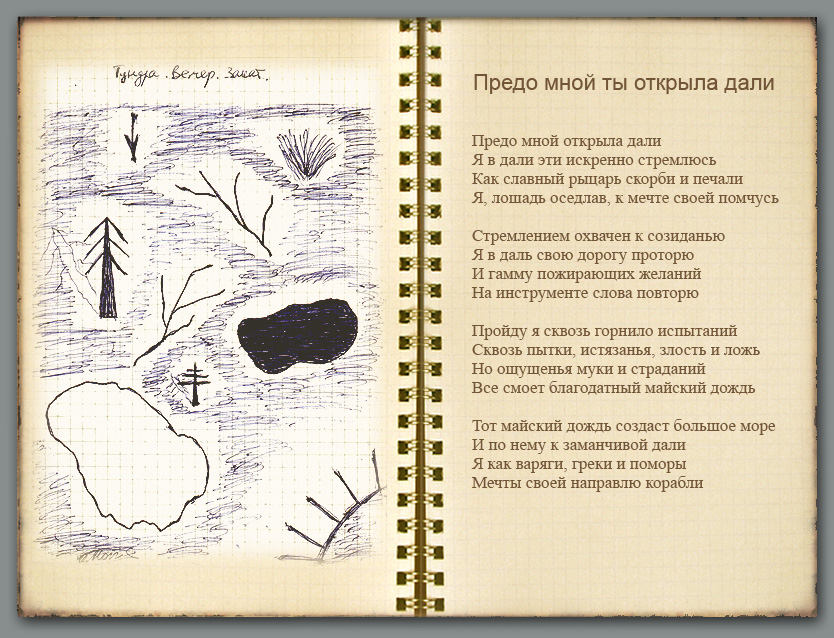 Тундра. Вечер. Закат.
Предо мной ты открыла дали
Предо мной открыла дали
Я в дали эти искренно стремлюсь
Как славный рыцарь скорби и печали
Я, лошадь оседлав, к мечте своей помчусь
Стремлением охвачен к созиданью
Я в даль свою дорогу проторю
И гамму пожирающих желаний
На инструменте слова повторю
Пройду я сквозь горнило испытаний
Сквозь пытки, истязанья, злость и ложь
Но ошущенья муки и страданий
Все смоет благодатный майский дождь
Тот майский дождь создаст большое море
И по нему к заманчивой дали
Я как варяги, греки и поморы
Мечты своей направлю корабли